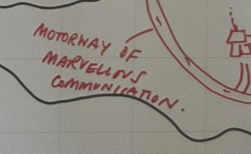 MOTORWAY OF
MARVELLOUS
COMMUNICATION.